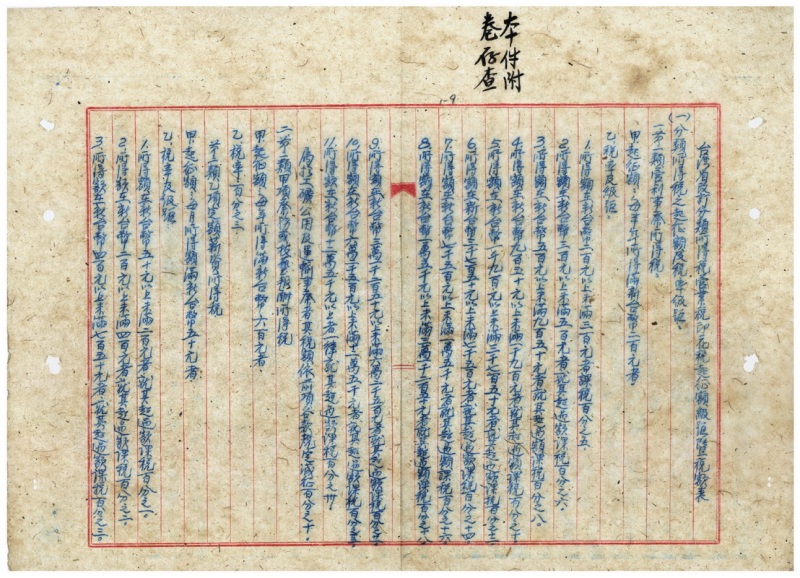 本件附
卷存查
1-9
台灣省暫行分類所得稅營業稅印花稅起征額級距暨稅額表
(一)分類所得稅之起征額及稅率級距:
一第一類營利事業所得稅
甲.起征額:每半年所得滿新台幣二百元者.
乙.稅率及級距
1.所得額在新台幣二百元以上未滿三百元者課稅百分之五.
2.所得額在新台幣三百元以上未滿五百元者就其超過額課稅百分之六.
3.所得額在新台幣五百元以上未滿九百五十元者就其超過額課稅百分之八.
4.所得額在新台幣九百五十元以上未滿一千九百元者就其超過額課稅百分之十
5.所得額在新台幣一千九百元以上未滿三千七百五十元者就其超過額課稅百分之十二
6.所得額在新台幣三千七百五十元以上未滿七千五百元者就其超過額課稅百分之十四.
7.所得額在新台幣七千五百元以上未滿一萬一千五百元者就其超過額課稅百分之十六.
8.所得額在新台幣一萬一千五百元以上未滿
9.所得額在新台幣
10.所得額在新台幣六萬二千五百元以上未滿十一萬五千元者就其超過額課稅百分之
11.所得額在新台幣十一萬五千元以上者一律就其超過額課稅百分之卅.
屬於公用及工礦事業者其稅額依前項規定減征百分之十.
二第二類甲項業務或技藝報酬所得稅
甲.起征額:每年所得滿新台幣六百元者
乙.稅率:百分之三
第二類乙項定額薪資所得稅
甲.起征額:每月所得額滿新台幣五十元者.
乙.稅率及級距
1.所得額在新台幣五十元以上未滿二百元者就其超過額課稅百分之一.
2.所得額在新台幣二百元以上未滿四百元者就其超過額課稅百分之二
3.所得額在新台幣四百元以上未滿七百五十元者就其超過額課稅百分之三.